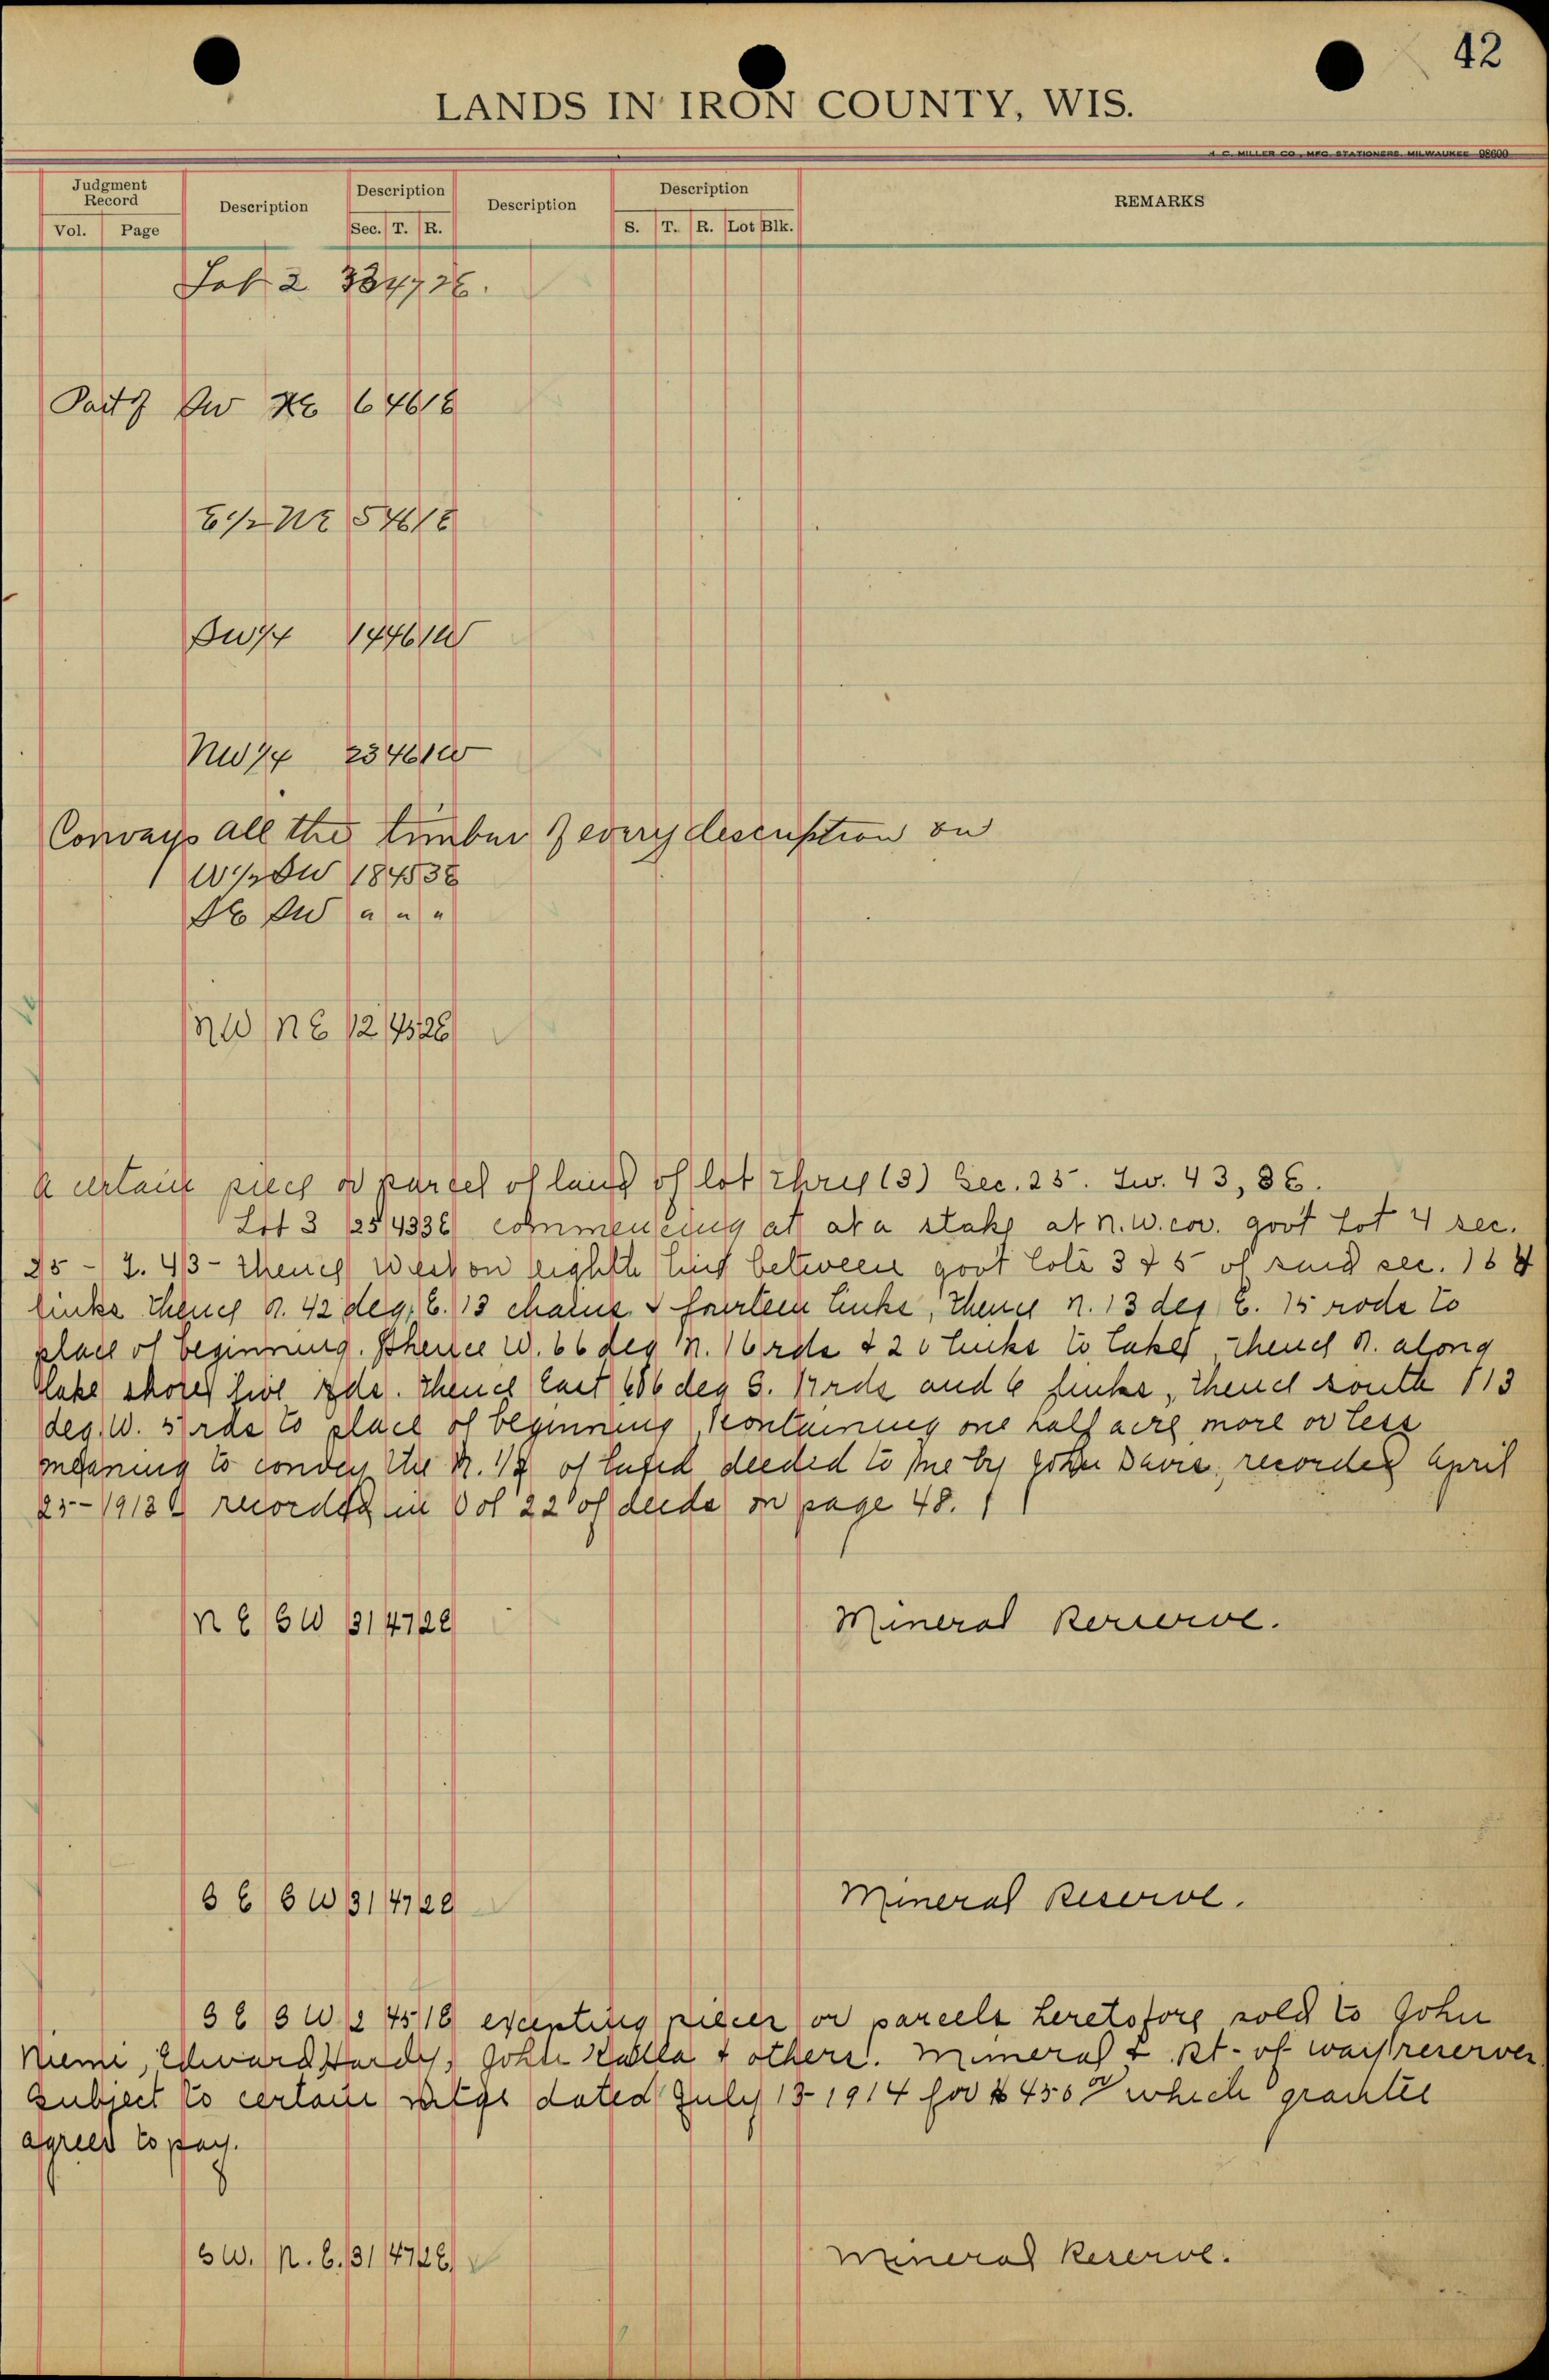 42
LANDS IN IRON COUNTY, WIS.
H. C. MILLER CO., MFG. STATIONERS, MILWAUKEE 98600
Judgment Record Description Description Description Description REMARKS
Vol. Page Sec. T. R. S. T. R. Lot Blk.
Lot 2 33 47 2E.
Part of SW NE 6 46 1E
E 1/2 NE 5 46 1E
SW 1/4 14 46 1W
NW 1/4 23 46 1W
Conveys all the timber of every description on
W 1/2 SW 18 45 3E
SE SW " " "
NW NE 12 45 2E
A certain piece or parcel of land of lot three (3) Sec. 25. Tw. 43, 3E.
Lot 3 25 43 3E commencing at at a stake at N.W. cor. gov't Lot 4 sec.
25 - T. 43 - thence west on eighth line between govt lots 3 & 5 of said sec. 164
links thence N. 42 deg. E. 13 chains & fourteen links, thence N. 13 deg E. 15 rods to
place of beginning. Thence W. 66 deg N. 16 rds & 20 links to lake, thence N. along
lake shore five rds. thence East 66 deg S. 17 rds and 6 links, thence south 13
deg. W. 5 rds to place of beginning, containing one half acre more or less
meaning to convey the N. 1/2 of land deeded to me by John Davis, recorded April
25 - 1913 recorded in Vol 22 of deeds on page 48.
NE SW 31 47 2E Mineral Reserve.
SE SW 31 47 2E Mineral Reserve.
SE SW 2 45 1E excepting pieces or parcels heretofore sold to John
Niemi, Edward Hardy, John Kalla & others. Mineral & Rt- of way reserves
subject to certain mtge dated July 13-1914 for $450 00 which grantee
agrees to pay.
SW. N.E. 31 47 2E Mineral Reserve.